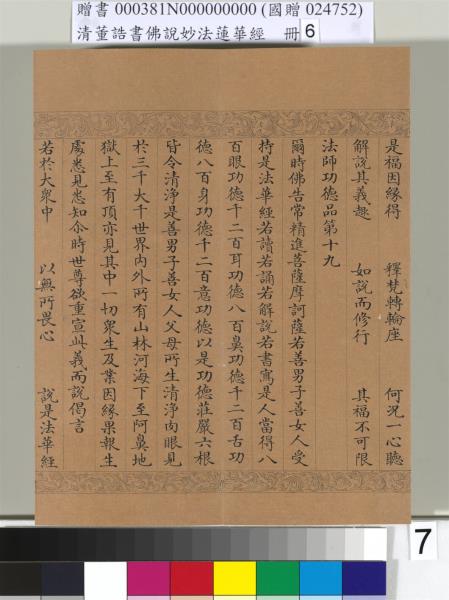 贈書 000381N000000000 (國贈 024752)
清董誥書佛說妙法蓮華經　冊6
是福因緣得　釋梵轉輪座　何況一心聽
解說其義趣　如說而修行　其福不可限
法師功德品第十九
爾時佛告常精進菩薩摩訶薩若善男子善女人受
持是法華經若讀若誦若解說若書寫是人當得八
百眼功德千二百耳功德八百鼻功德千二百舌功
德八百身功德千二百意功德以是功德莊嚴六根
皆令清淨是善男子善女人父母所生清淨肉眼見
於三千大千世界內外所有山林河海下至阿鼻地
獄上至有頂亦見其中一切眾生及業因緣果報生
處悉見悉知尒時世尊欲重宣此義而說偈言
若於大眾中　以無所畏心　說是法華經
7